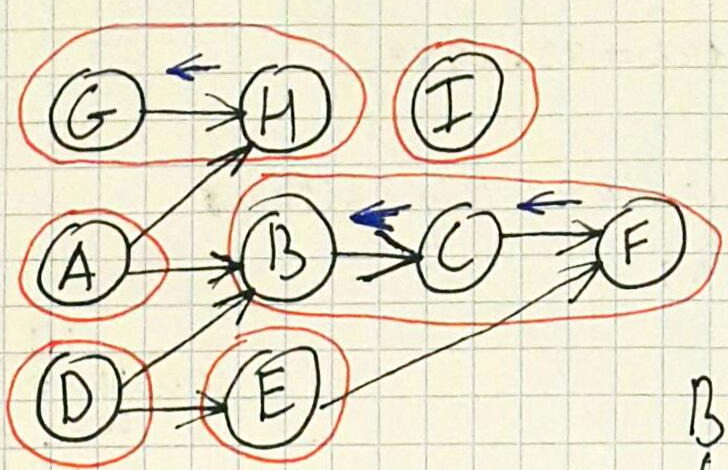 G H I
A B C F
D E
B